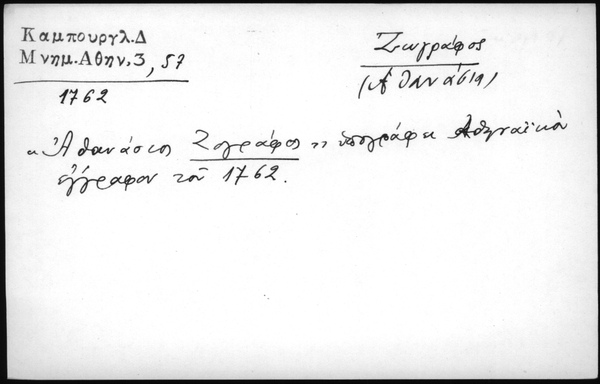 Καμπουργλ.Δ
Μνημ.Αθην.3, 57
1762
Ζωγράφος
(Ἀθανάσιος)
"Ἀθανάσιος Ζογράφος" ὑπογράφει Ἀθηναϊκὸν
ἔγγραφον τοῦ 1762.